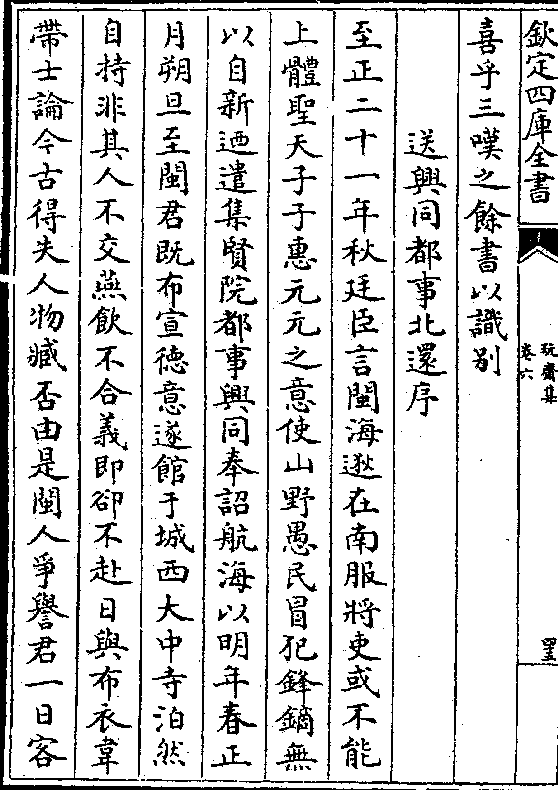 欽定四庫全書
玩齋集
卷六
喜乎三嘆之餘書以識别
送興同都事北還序
至正二十一年秋廷臣言閩海逖在南服將吏或不能
上體聖天子子惠元元之意使山野愚民冒犯鋒鏑無
以自新迺遣集賢院都事興同奉詔航海以明年春正
月朔旦至閩君既布宣德意遂館于城西大中寺泊然
自持非其人不交燕飲不合義即卻不赴日與布衣韋
帶士論今古得失人物臧否由是閩人爭譽君一日客